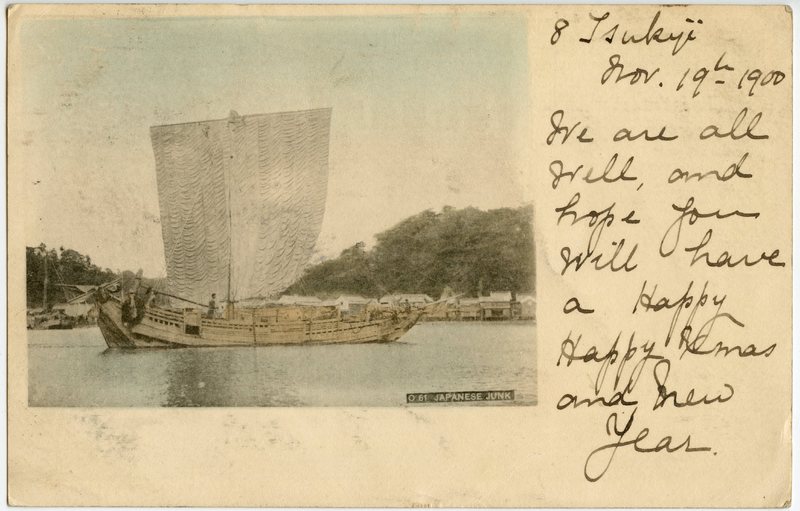 8 Tsukiji
Nov. 19th 1900
We are all
well, and
hope you
will have
a Happy
Happy Xmas
and New
Year.
O 61 JAPANESE JUNK